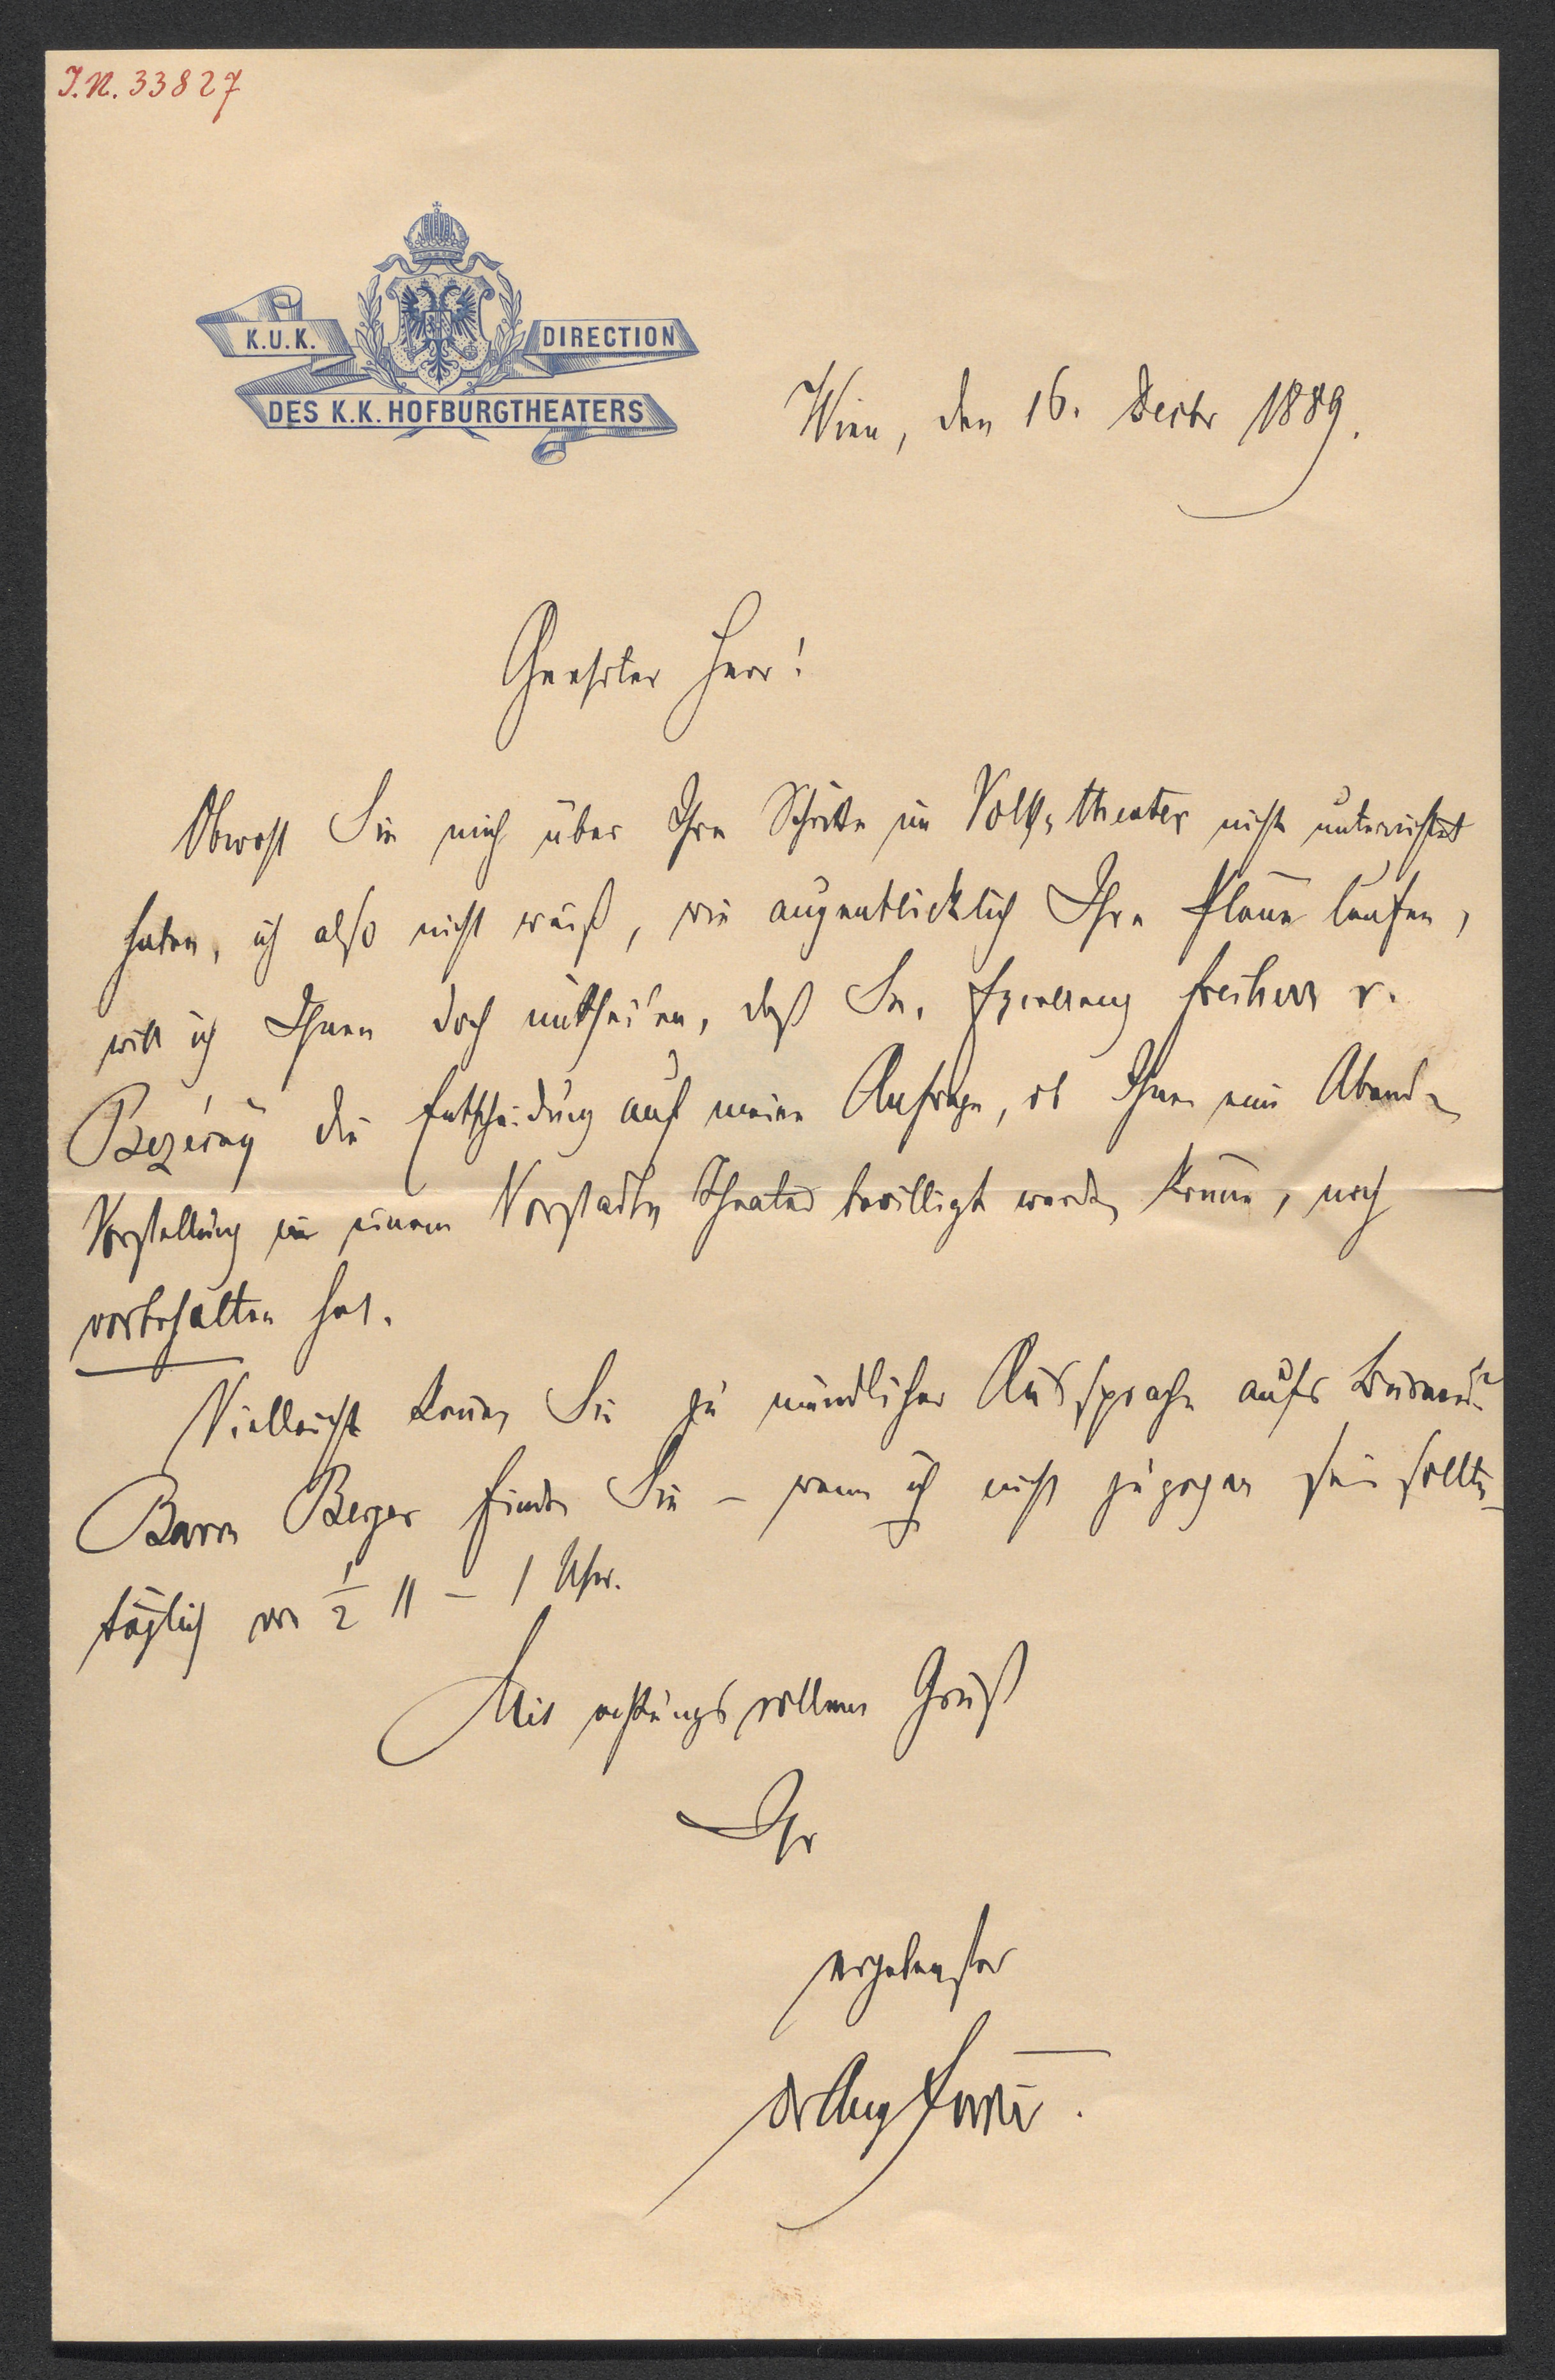 I.N. 33827
K.U.K. DIRECTION
DES K.K. HOFBURGTHEATERS
Wien, den 16. Decbr 1889.
Geehrter Herr!
Obwohl Sie mich über Ihre Schritte im Volkstheater nicht unterrichtet
haben, ich also nicht weiß, wie augenblicklich Ihre Pläne laufen,
will ich Ihnen doch mittheilen, daß Se. Excellenz Freiherr v.
Bezécny die Entscheidung auf meine Anfrage, ob Ihnen eine Abend-
Vorstellung in einem Vorstadt Theater bewilligt werden könne, noch
vorbehalten hat.
Vielleicht kommen Sie zu mündlicher Aussprache aufs Bureau?
Baron Berger finden Sie – wenn ich nicht zugegen sein sollte –
täglich von ½ 11 – 1 Uhr.
Mit achtungsvollem Gruß
Ihr
ergebenster
Dr Aug Förster.